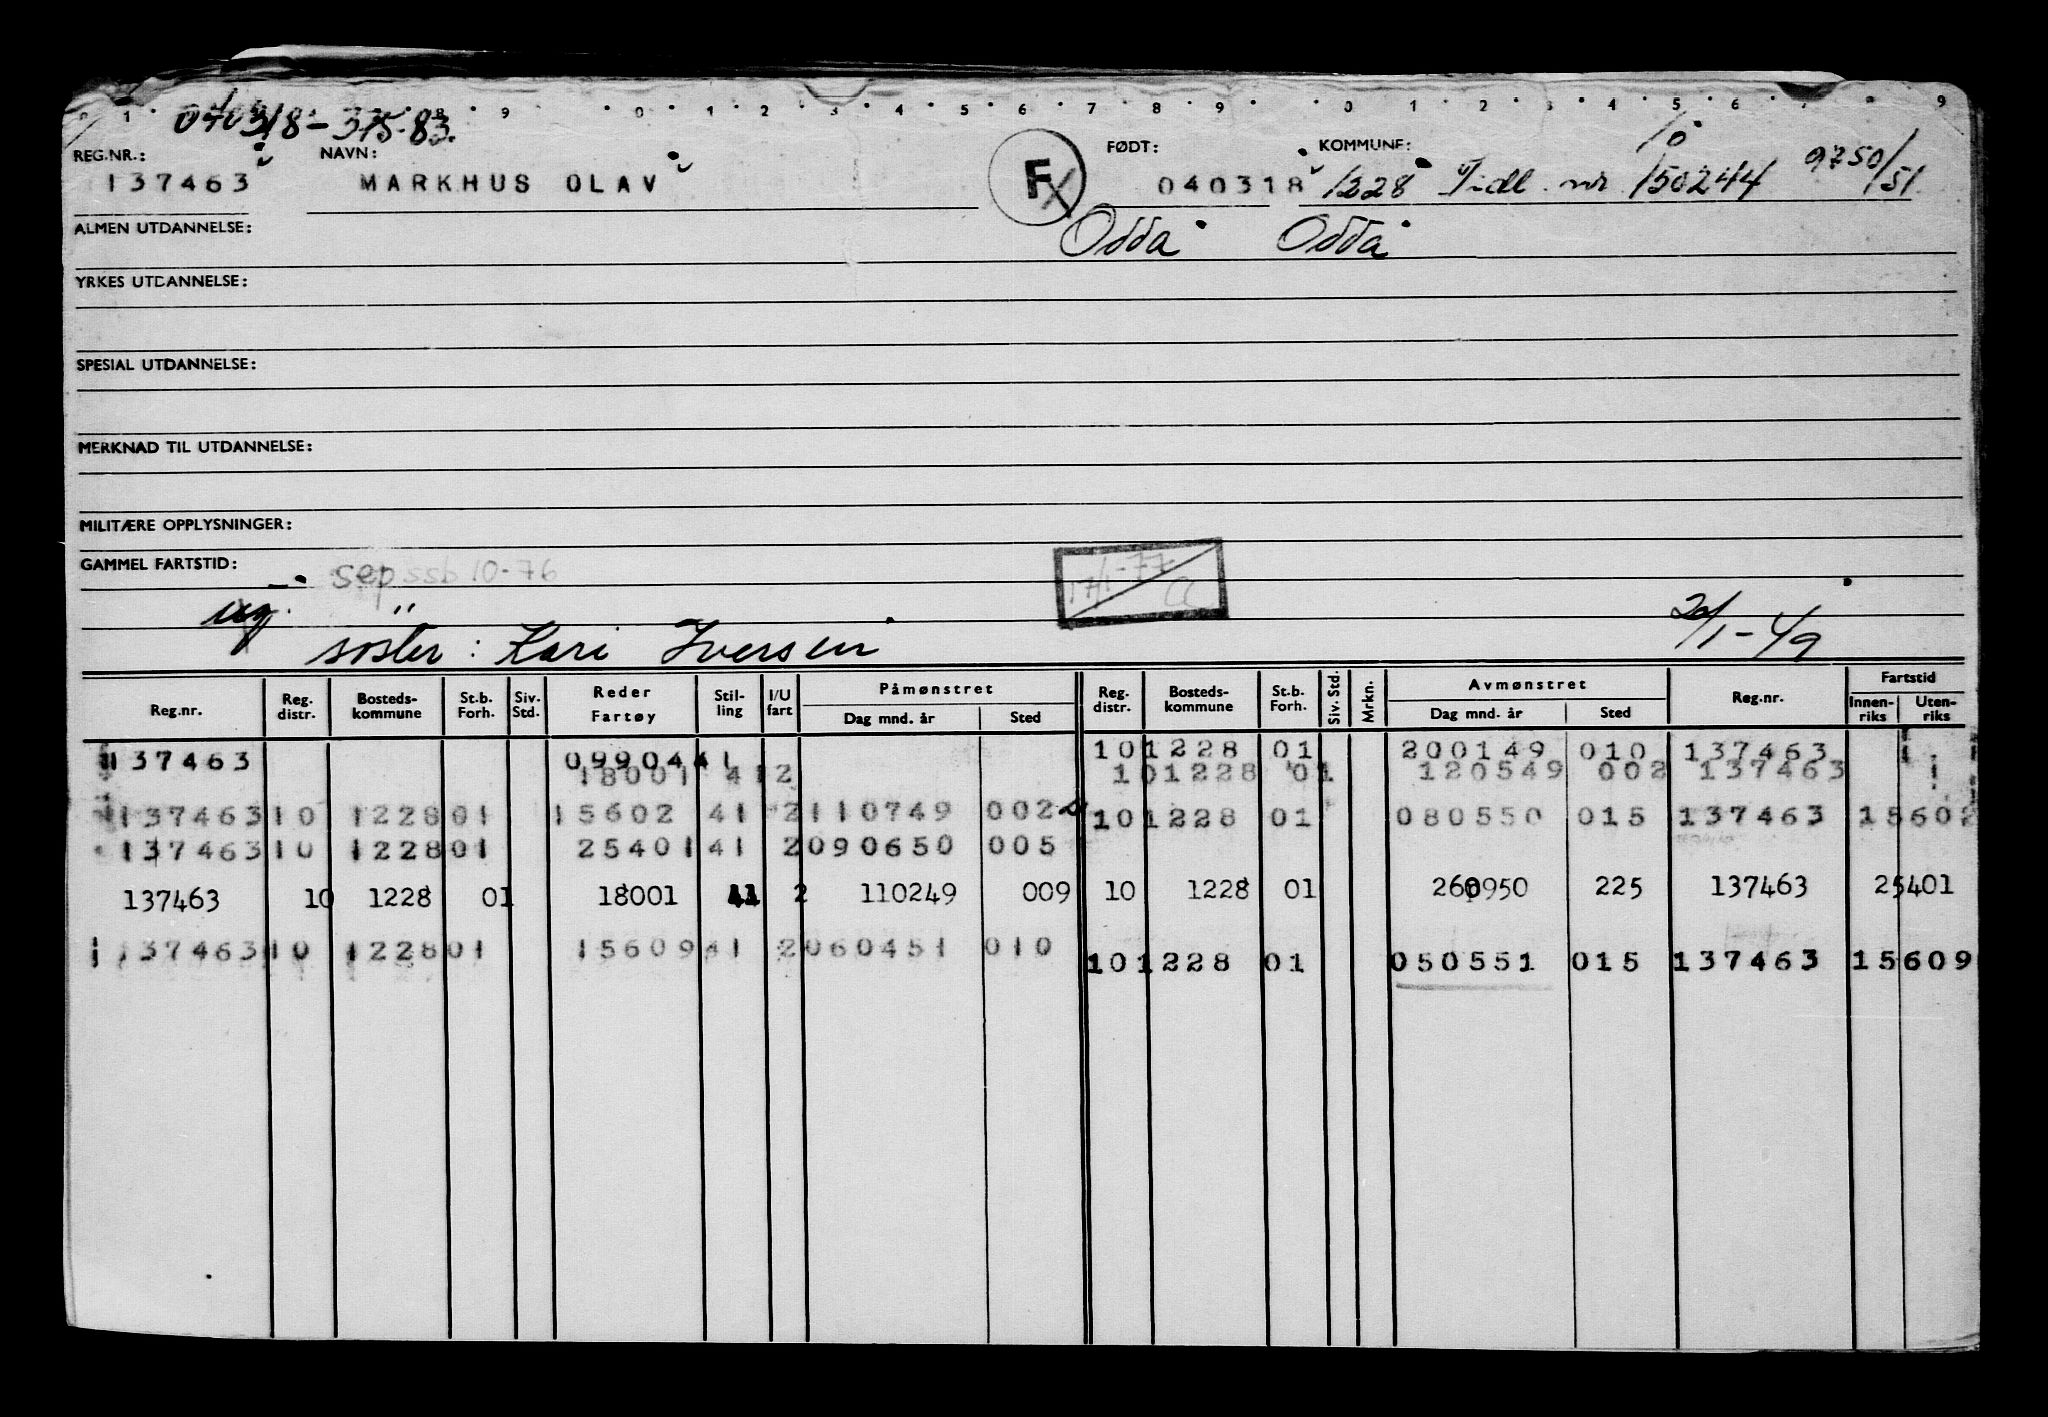 040318-375.83.
REG.NR.: NAVN: FØDT: KOMMUNE:
137463 MARKHUS OLAV F 040318 1228 Tidl. nr 150244 9750/51
ALMEN UTDANNELSE: Odda Odda
YRKES UTDANNELSE:
SPESIAL UTDANNELSE:
MERKNAD TIL UTDANNELSE:
MILITÆRE OPPLYSNINGER:
GAMMEL FARTSTID: sep ssb 10-76 17/1-77
ug.
søster: Kari Iversen 20/1-49
Reg.nr. Reg. distr. Bosteds-kommune St.b. Forh. Siv. Std. Reder Fartøy Stil-ling I/U fart Påmønstret Dag mnd. år Sted Reg. distr. Bosteds-kommune St.b. Forh. Siv. Std. Mrkn. Avmønstret Dag mnd. år Sted Reg.nr. Fartstid Innen-riks Uten-riks
137463 09904 41 10 1228 01 200149 010 137463
18001 41 2 10 1228 01 120549 002 137463
137463 10 1228 01 15602 41 2 110749 002 10 1228 01 080550 015 137463 15602
137463 10 1228 01 25401 41 2 090650 005
137463 10 1228 01 18001 41 2 110249 009 10 1228 01 260950 225 137463 25401
137463 10 1228 01 15609 41 2 060451 010 10 1228 01 050551 015 137463 15609